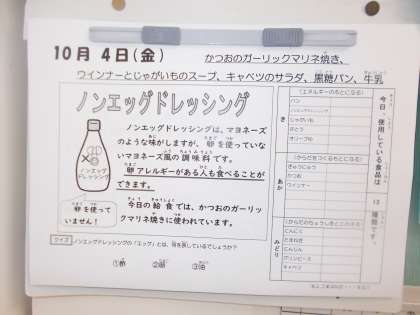 10月 4日(金)
かつおのガーリックマリネ焼き、
ウインナーとじゃがいものスープ、キャベツのサラダ、黒糖パン、牛乳
ノンエッグドレッシング
ノンエッグドレッシングは、マヨネーズ
のような味がしますが、卵を使っていな
いマヨネーズ風の調味料です。
卵アレルギーがある人も食べることが
できます。
今日の給食では、かつおのガーリッ
クマリネ焼きに使われています。
ノンエッグ
ドレッシング
卵を使って
いません!
クイズ
ノンエッグドレッシングの「エッグ」とは、何を表しているでしょうか?
①酢 ②卵 ③油
今日、使用している食品は
種類です。
き
(エネルギーのもとになる)
パン
ノンエッグドレッシング
じゃがいも
さとう
オリーブ油
あか
(からだをつくるもとになる)
ぎゅうにゅう
かつお
ウインナー
みどり
(からだのちょうしをととのえる)
にんにく
たまねぎ
にんじん
キャベツ